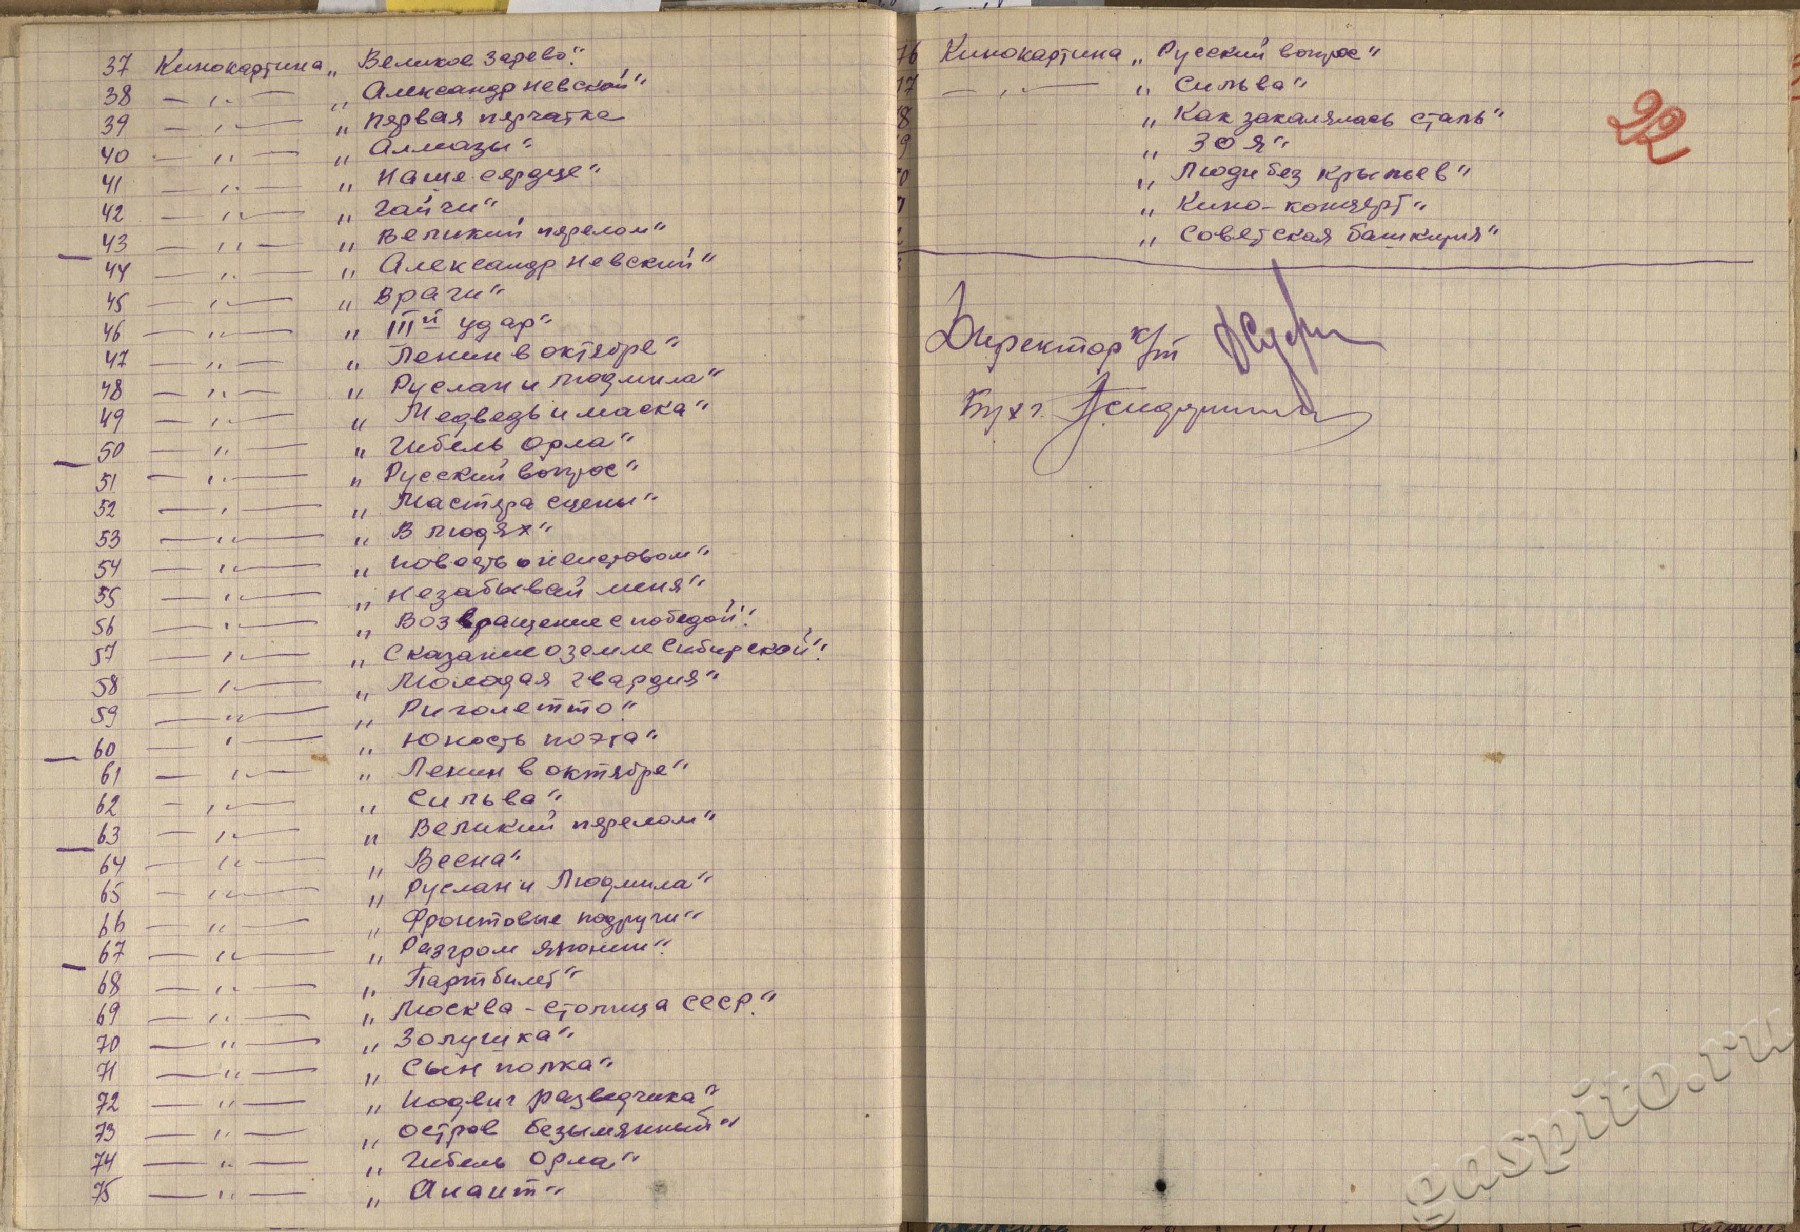 37 Кинокартина „Великое зарево".
38 — „ — „Александр Невский"
39 — „ — „Первая перчатка
40 — „ — „Алмазы"
41 — „ — „Наше сердце"
42 — „ — „Гайчи"
43 — „ — „Великий перелом"
44 — „ — „Александр Невский"
45 — „ — „Врачи"
46 — „ — „III й удар"
47 — „ — „Ленин в октябре"
48 — „ — „Руслан и Людмила"
49 — „ — „Медведь и маска"
50 — „ — „Гибель Орла"
51 — „ — „Русский вопрос"
52 — „ — „Мастера сцены"
53 — „ — „В людях"
54 — „ — „Повесть о неистовом"
55 — „ — „Незабывай меня"
56 — „ — „Возвращение с победой".
57 — „ — „Сказание о земле Сибирской".
58 — „ — „Молодая гвардия"
59 — „ — „Риголетто"
60 — „ — „Юность поэта"
61 — „ — „Ленин в октябре"
62 — „ — „Сильва"
63 — „ — „Великий перелом"
64 — „ — „Весна"
65 — „ — „Руслан и Людмила"
66 — „ — „Фронтовые подруги"
67 — „ — „Разгром японии".
68 — „ — „Партбилет"
69 — „ — „Москва - столица СССР."
70 — „ — „Золушка"
71 — „ — „Сын полка"
72 — „ — „Подвиг разведчика"
73 — „ — „Остров безымянный"
74 — „ — „Гибель Орла"
75 — „ — „Анаит"
76 Кинокартина „Русский вопрос"
77 — „ — „Сильва"
78 „Как закалялась сталь"
79 „Зоя"
„Люди без крыльев"
„Кино-концерт"
„Советская башкирия"
22
Директор к/т
Бухг.
gaspito.ru